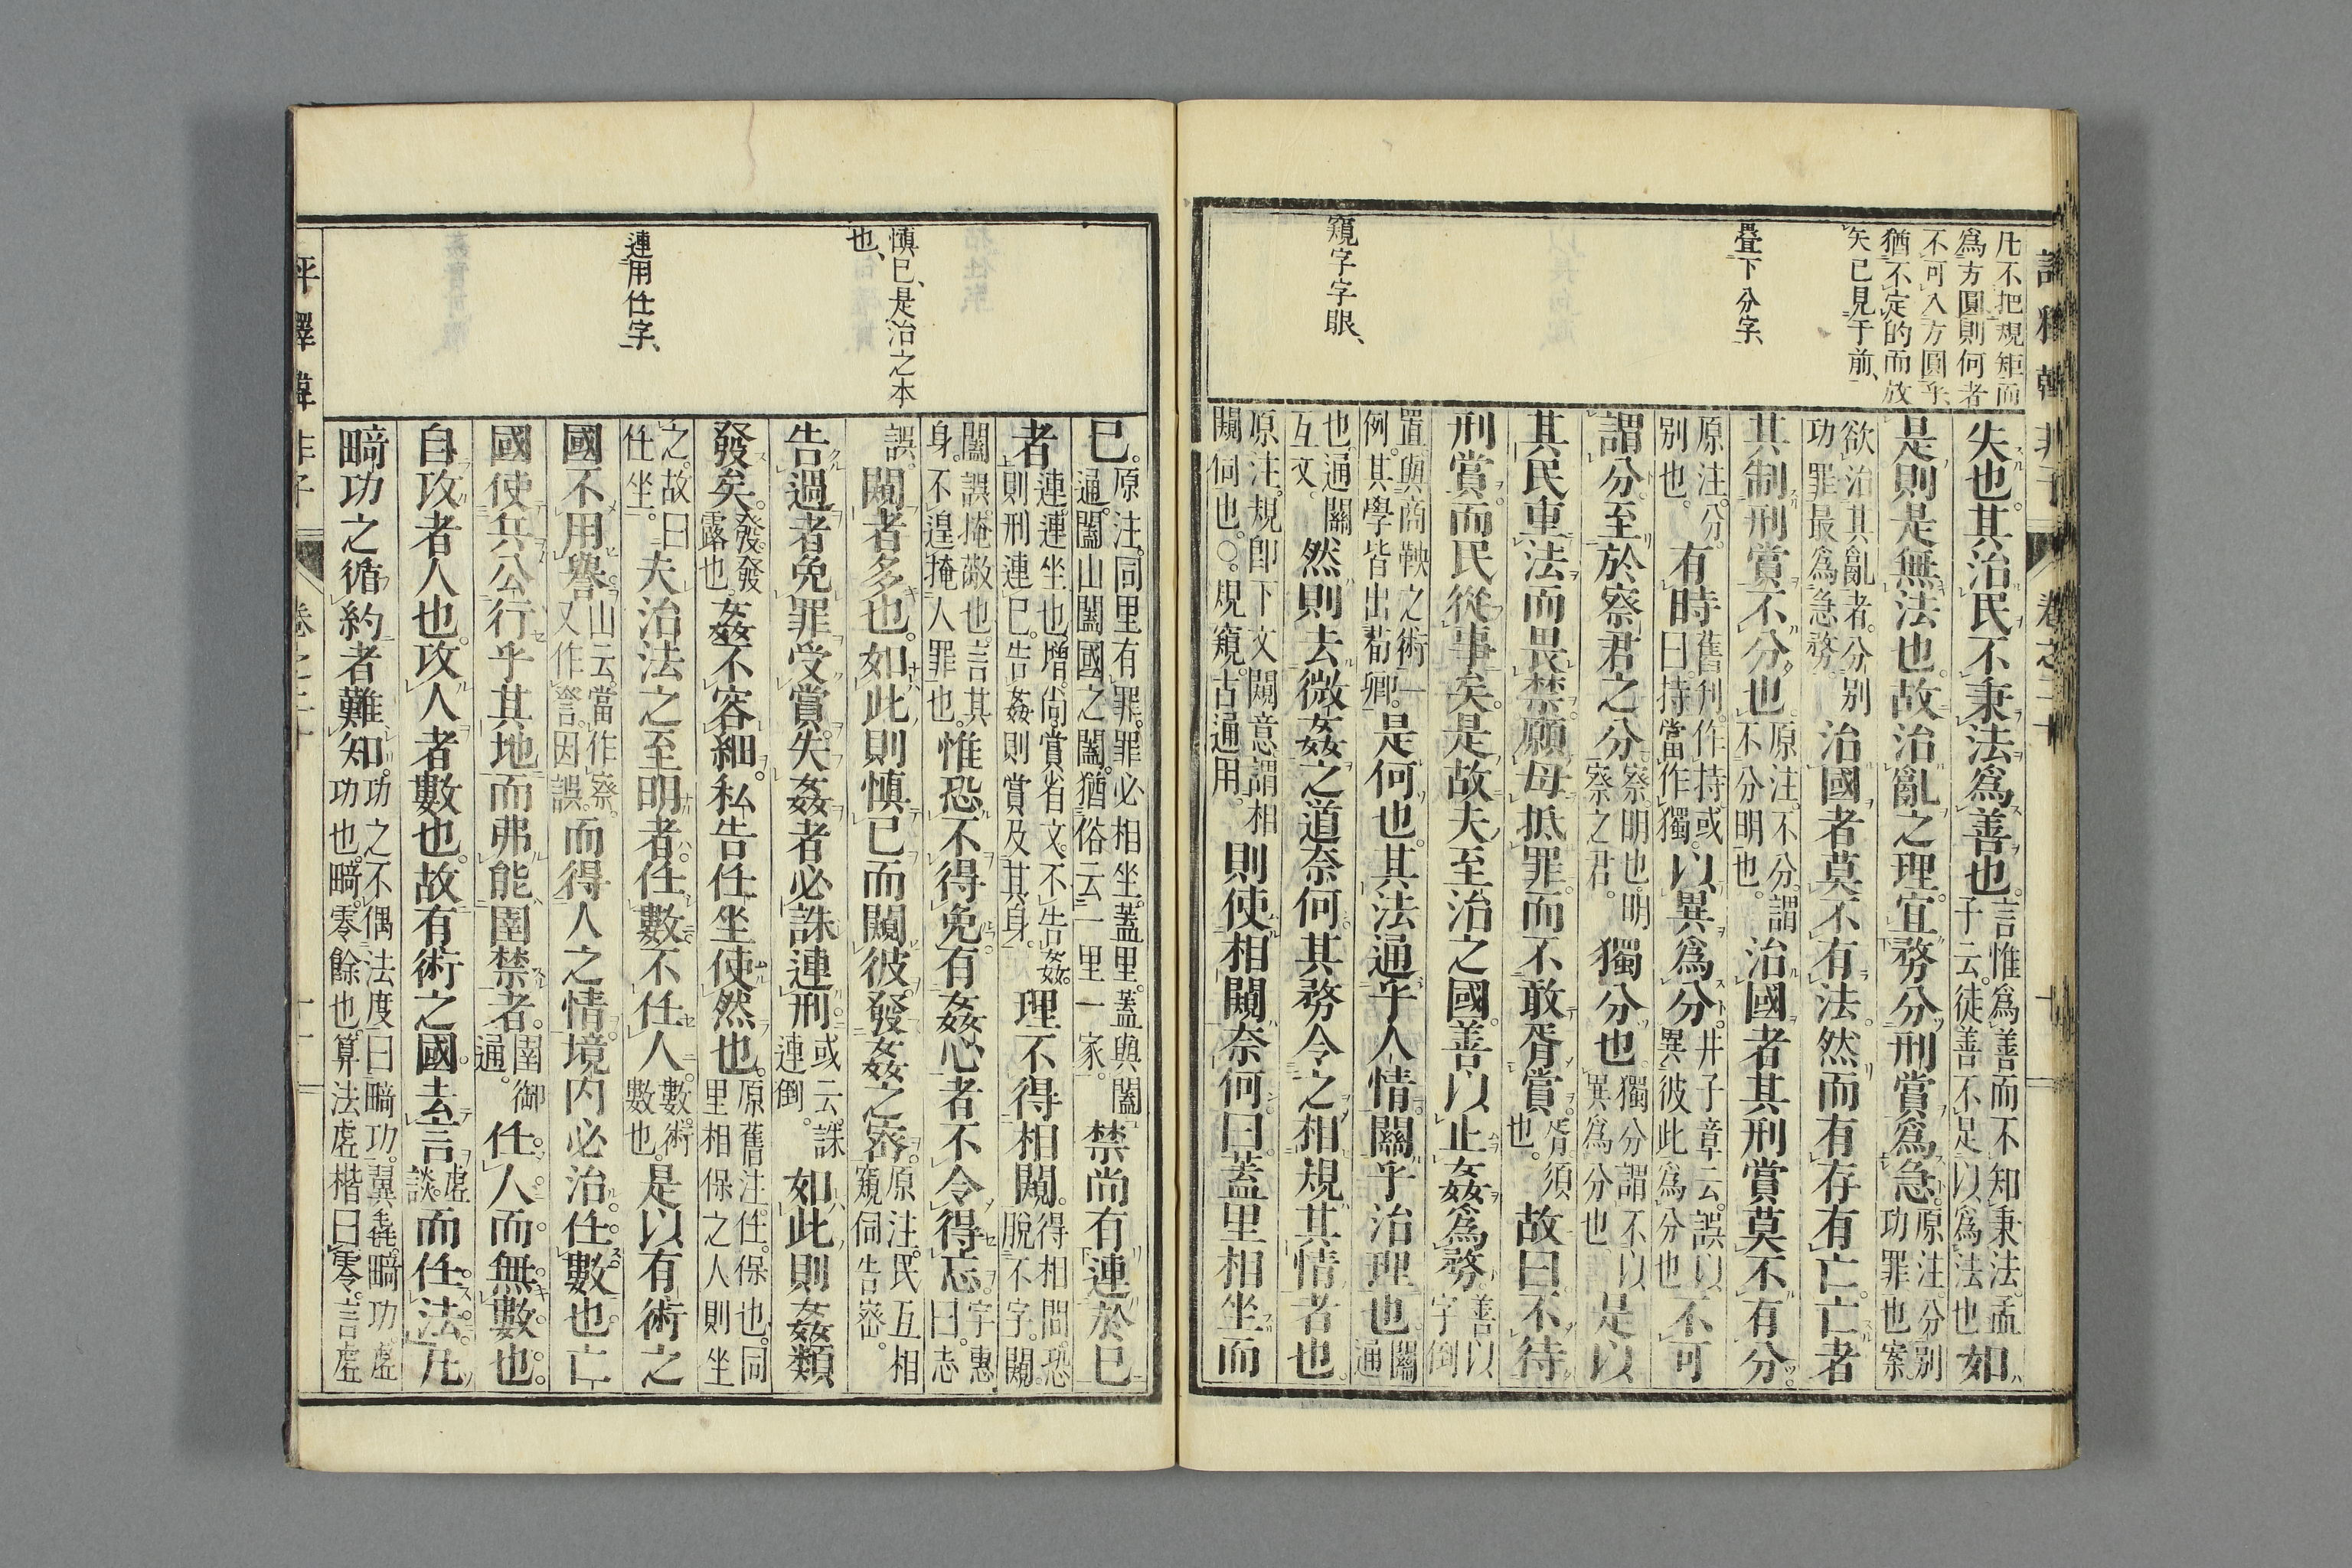 評釋韓非子 卷之二十 十
凡不把規矩而
爲方圓則何者
不可入方圓乎、
猶不定的而放
矢已見于前、
疊下分字、
窺字字眼、
失也。其治民不秉法爲善也。言惟爲善而不知秉法。孟子云。徒善不足以爲法也如
是則是無法也。故治亂之理。宜務分刑賞爲急。原注。分別功罪也案。
欲治其亂者。分別功罪最爲急務。治國者莫不有法。然而有存有亡。亡者
其制刑賞不分也。原注。不分。謂不分明也。治國者其刑賞莫不有分。
原注。分。別也。有時舊刋作持或曰。持當作獨。以異爲分。井子章云。誤以異彼此爲分也不可
謂分。至於察君之分。察。明也。明察之君。獨分也獨分謂不以異爲分也是以
其民重法而畏禁。願毋抵罪。而不敢胥賞。胥須也。故曰。不待
刑賞。而民從事矣。是故夫至治之國。善以止姦爲務。善以字倒
置與商鞅之術一例。其學皆出荀卿。是何也。其法通乎人情。關乎治理也。關通
也。通關互文。然則去微姦之道奈何。其務令之相規其情者也。
原注。規卽下文闚意謂相闚伺也。○。規窺。古通用。則使相闚奈何。曰。蓋里相坐而
慎已、是治之本
也、
連用任字、
已。原注。同里有罪。罪必相坐。蓋里。蓋與闔通。闔山闔國之闔。猶俗云一里一家。禁尚有連於已
者連連坐也。增。尚賞省文。不告姦。則刑連已。告姦則賞及其身。理不得相闚。得相間。恐脫不字。闚
闔誤。掩蔽也。言其身。不遑掩人罪也。惟恐不得免。有姦心者不令得忘。宇惠曰。志
誤。闚者多也。如此則慎已而闚彼。發姦之密。原注。民互相窺伺告密。
告過者免罪受賞。失姦者必誅連刑。或云。誅連倒。如此則姦類
發矣。發發露也。姦不容細。私告任坐使然也。原舊注。任。保也。同里相保之人則坐
之。故曰任坐。夫治法之至明者。任數不任人。數。術數也。是以有術之
國不用譽。山云當作察。又作詧。因誤。而得人之情。境内必治。任數也。亡
國使兵公行乎其地。而弗能圉禁者。圉御通。任人而無數也。
自攻者人也。攻人者數也。故有術之國。去言虛談。而任法。凡
畸功之循約者難知。功之不偶法度曰畸功。翼毳。畸功。虛功也。畸。零餘也。算法虛楷曰零。言虛
評釋韓非子 卷之二十 十一